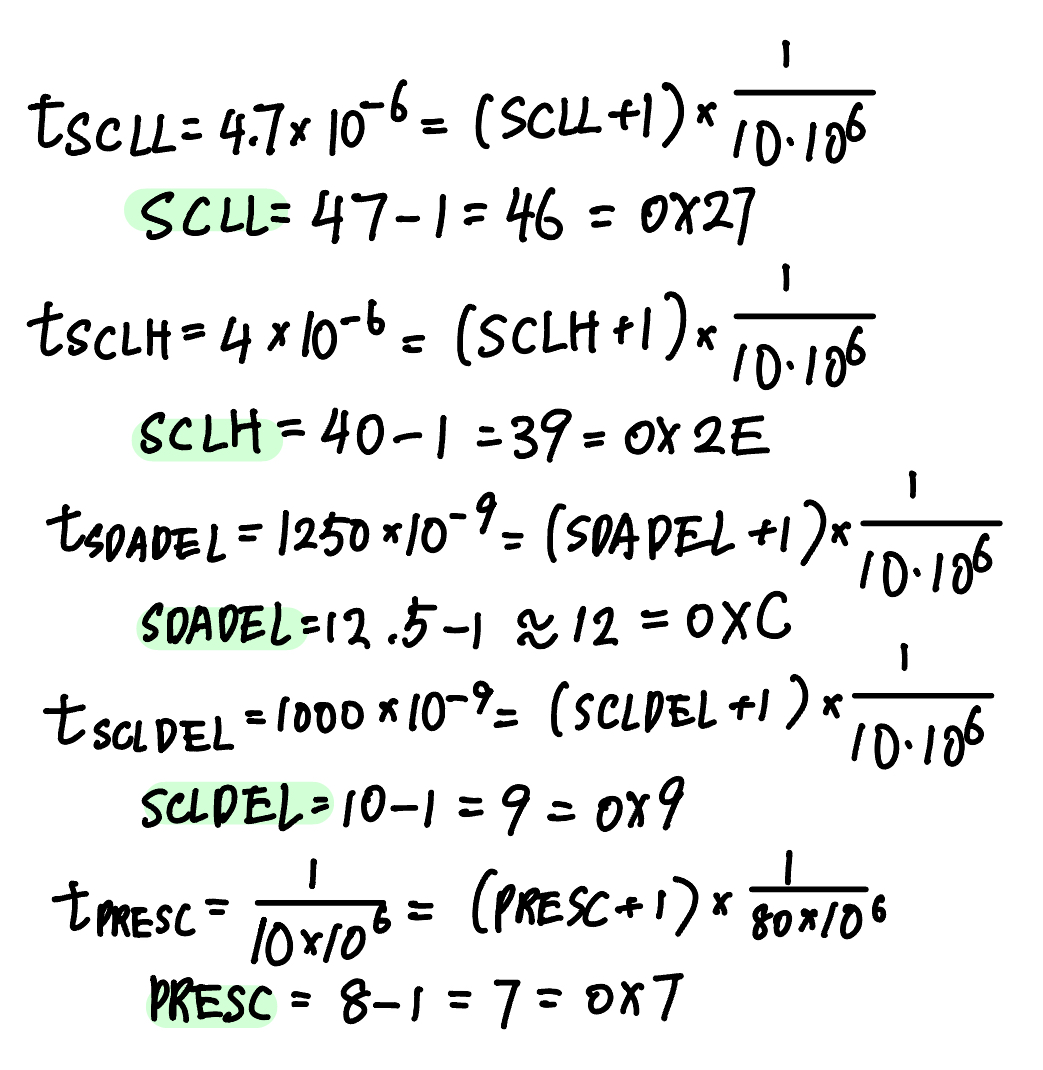 t_SCLL = 4.7 × 10^-6 = (SCLL+1) × 1/(10·10^6)
SCLL = 47-1 = 46 = 0X27
t_SCLH = 4 × 10^-6 = (SCLH+1) × 1/(10·10^6)
SCLH = 40-1 = 39 = 0X2E
t_SDADEL = 1250 × 10^-9 = (SDADEL+1) × 1/(10·10^6)
SDADEL = 12.5-1 ≈ 12 = 0XC
t_SCLDEL = 1000 × 10^-9 = (SCLDEL+1) × 1/(10·10^6)
SCLDEL = 10-1 = 9 = 0X9
t_PRESC = 1/(10×10^6) = (PRESC+1) × 1/(80×10^6)
PRESC = 8-1 = 7 = 0X7